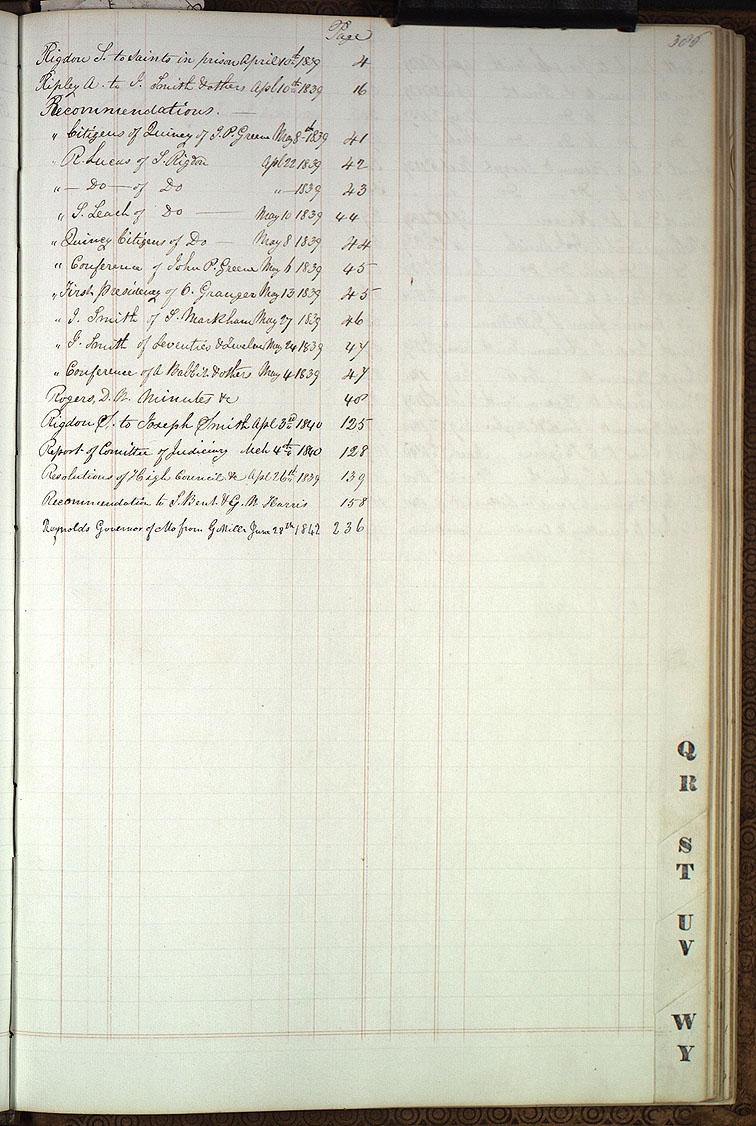 Page
385
Rigdon S. to Saints in prison April 10th 1839 4
Ripley A. to J. Smith & others Apl 10th 1839 16
Recommendations. —
" Citizens of Quincy of J. P. Greene May 8th 1839 41
" R. Lucas of S. Rigdon Apl 22 1839 42
" — Do — of Do " — 1839 43
" S. Leach of Do — May 10 1839 44
" Quincy Citizens of Do — May 8 1839 44
" Conference of John P. Greene May 6 1839 45
" First Presidency of O. Granger May 13 1839 45
" J. Smith of S. Markham May 27 1839 46
" J. Smith of Seventies & Twelve May 24 1839 47
" Conference of A Babbit & others May 4 1839 47
Rogers, D. W. Minutes &c 40
Rigdon S. to Joseph Smith Apl 3rd 1840 125
Report of Comittee of Judiciary Mch 4th 1840 128
Resolutions of High Council &c Apl 26th 1839 139
Recommendation to S. Bent & G. W. Harris 158
Reynolds Governor of Mo from G Miller June 28th 1842 236
Q
R
S
T
U
V
W
Y